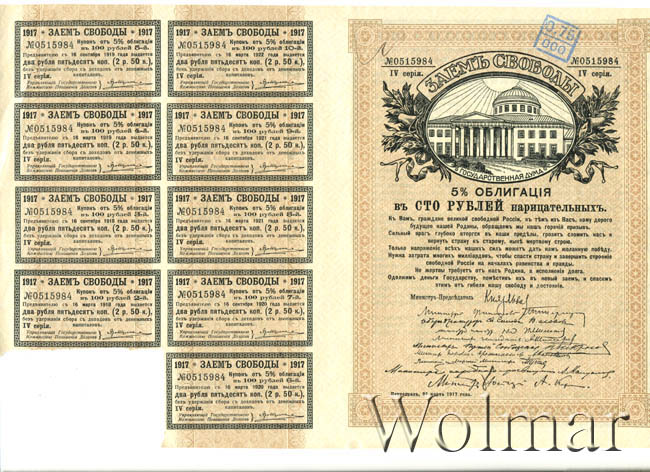 1917 ★ ЗАЕМЪ СВОБОДЫ ★ 1917
№0515984
Купонъ отъ 5% облигаціи
въ 100 рублей 5-й.
Предъявителю съ 16 сентября 1919 года выдается
два рубля пятьдесятъ коп. (2 р. 50 к.),
безъ удержанія сбора съ доходовъ съ денежныхъ
капиталовъ.
IV серія.
Управляющій Государственною
Коммиссіею Погашенія Долговъ
1917 ★ ЗАЕМЪ СВОБОДЫ ★ 1917
№0515984
Купонъ отъ 5% облигаціи
въ 100 рублей 10-й.
Предъявителю съ 16 марта 1922 года выдается
два рубля пятьдесятъ коп. (2 р. 50 к.),
безъ удержанія сбора съ доходовъ съ денежныхъ
капиталовъ.
IV серія.
Управляющій Государственною
Коммиссіею Погашенія Долговъ
1917 ★ ЗАЕМЪ СВОБОДЫ ★ 1917
№0515984
Купонъ отъ 5% облигаціи
въ 100 рублей 4-й.
Предъявителю съ 16 марта 1919 года выдается
два рубля пятьдесятъ коп. (2 р. 50 к.),
безъ удержанія сбора съ доходовъ съ денежныхъ
капиталовъ.
IV серія.
Управляющій Государственною
Коммиссіею Погашенія Долговъ
1917 ★ ЗАЕМЪ СВОБОДЫ ★ 1917
№0515984
Купонъ отъ 5% облигаціи
въ 100 рублей 9-й.
Предъявителю съ 16 сентября 1921 года выдается
два рубля пятьдесятъ коп. (2 р. 50 к.),
безъ удержанія сбора съ доходовъ съ денежныхъ
капиталовъ.
IV серія.
Управляющій Государственною
Коммиссіею Погашенія Долговъ
1917 ★ ЗАЕМЪ СВОБОДЫ ★ 1917
№0515984
Купонъ отъ 5% облигаціи
въ 100 рублей 3-й.
Предъявителю съ 16 сентября 1918 года выдается
два рубля пятьдесятъ коп. (2 р. 50 к.),
безъ удержанія сбора съ доходовъ съ денежныхъ
капиталовъ.
IV серія.
Управляющій Государственною
Коммиссіею Погашенія Долговъ
1917 ★ ЗАЕМЪ СВОБОДЫ ★ 1917
№0515984
Купонъ отъ 5% облигаціи
въ 100 рублей 8-й.
Предъявителю съ 16 марта 1921 года выдается
два рубля пятьдесятъ коп. (2 р. 50 к.),
безъ удержанія сбора съ доходовъ съ денежныхъ
капиталовъ.
IV серія.
Управляющій Государственною
Коммиссіею Погашенія Долговъ
1917 ★ ЗАЕМЪ СВОБОДЫ ★ 1917
№0515984
Купонъ отъ 5% облигаціи
въ 100 рублей 2-й.
Предъявителю съ 16 марта 1918 года выдается
два рубля пятьдесятъ коп. (2 р. 50 к.),
безъ удержанія сбора съ доходовъ съ денежныхъ
капиталовъ.
IV серія.
Управляющій Государственною
Коммиссіею Погашенія Долговъ
1917 ★ ЗАЕМЪ СВОБОДЫ ★ 1917
№0515984
Купонъ отъ 5% облигаціи
въ 100 рублей 7-й.
Предъявителю съ 16 сентября 1920 года выдается
два рубля пятьдесятъ коп. (2 р. 50 к.),
безъ удержанія сбора съ доходовъ съ денежныхъ
капиталовъ.
IV серія.
Управляющій Государственною
Коммиссіею Погашенія Долговъ
1917 ★ ЗАЕМЪ СВОБОДЫ ★ 1917
№0515984
Купонъ отъ 5% облигаціи
въ 100 рублей 6-й.
Предъявителю съ 16 марта 1920 года выдается
два рубля пятьдесятъ коп. (2 р. 50 к.),
безъ удержанія сбора съ доходовъ съ денежныхъ
капиталовъ.
IV серія.
Управляющій Государственною
Коммиссіею Погашенія Долговъ
0.75
000
№0515984 №0515984
IV серія. IV серія.
ЗАЕМЪ СВОБОДЫ
ГОСУДАРСТВЕННАЯ ДУМА
5% ОБЛИГАЦІЯ
въ СТО РУБЛЕЙ нарицательныхъ.
Къ Вамъ, граждане великой свободной Россіи, къ тѣмъ изъ Васъ, кому дорого
будущее нашей Родины, обращаемъ мы нашъ горячій призывъ.
Сильный врагъ глубоко вторгся въ наши предѣлы, грозитъ сломить насъ и
вернуть страну къ старому, нынѣ мертвому строю.
Только напряженіе всѣхъ нашихъ силъ можетъ дать намъ желанную побѣду.
Нужна затрата многихъ милліардовъ, чтобы спасти страну и завершить строеніе
свободной Россіи на началахъ равенства и правды.
Не жертвы требуетъ отъ насъ Родина, а исполненія долга.
Одолжимъ деньги Государству, помѣстивъ ихъ въ новый заемъ, и спасемъ
этимъ отъ гибели нашу свободу и достояніе.
Министръ-Предсѣдатель
Петроградъ, 27 марта 1917 года.
Wolmar